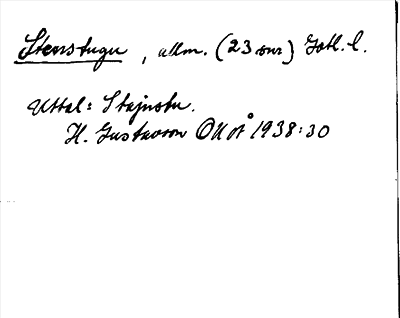 Stenstugu, allm. (23 snr) Gotl. l.
Uttal: Stajnstu.
H. Gustavson OUoÅ 1938:30